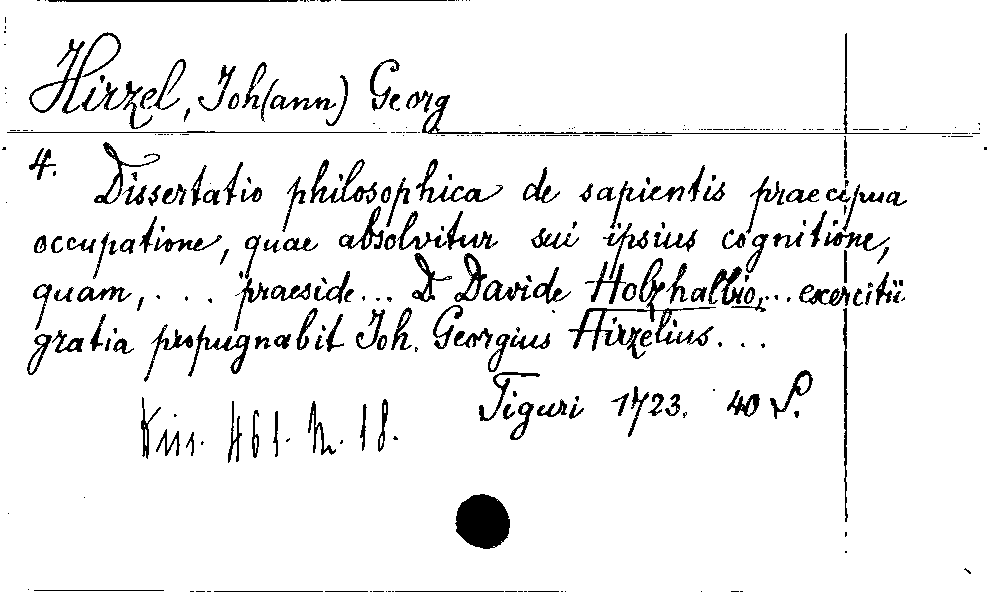 Hirzel, Joh(ann) Georg
4. Dissertatio philosophica de sapientis praecipua
occupatione, quae absolvitur sui ipsius cognitione,
quam, . . . praeside... D. Davide Holzhalbio,... exercitii
gratia propugnabit Joh. Georgius Hirzelius...
Tiguri 1723. 40 S.
461. N. 18.